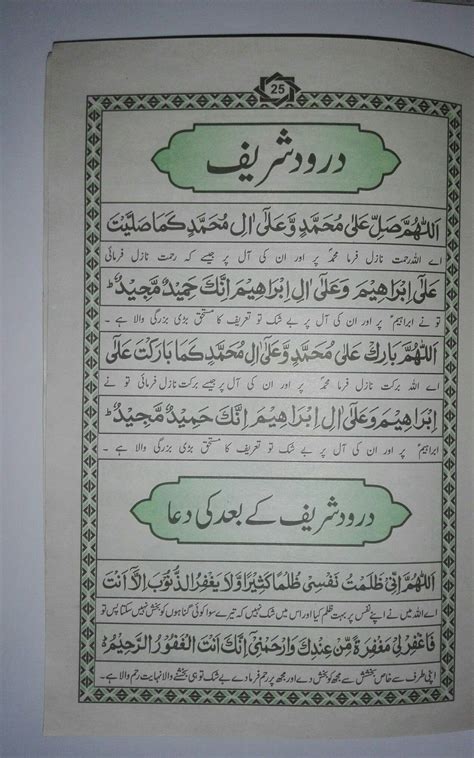 25
درود شریف
اَللّٰهُمَّ صَلِّ عَلٰى مُحَمَّدٍ وَّعَلٰٓى اٰلِ مُحَمَّدٍ كَمَا صَلَّيْتَ
اے اللہ رحمت نازل فرما محمدؐ پر اور ان کی آل پر جیسے کہ رحمت نازل فرمائی
عَلٰٓى اِبْرَاهِيْمَ وَعَلٰٓى اٰلِ اِبْرَاهِيْمَ اِنَّكَ حَمِيْدٌ مَّجِيْدٌ ؕ
تو نے ابراہیمؑ پر اور ان کی آل پر بے شک تو تعریف کا مستحق بڑی بزرگی والا ہے ۔
اَللّٰهُمَّ بَارِكْ عَلٰى مُحَمَّدٍ وَّعَلٰٓى اٰلِ مُحَمَّدٍ كَمَا بَارَكْتَ عَلٰٓى
اے اللہ برکت نازل فرما محمدؐ پر اور ان کی آل پر جیسے برکت نازل فرمائی تو نے
اِبْرَاهِيْمَ وَعَلٰٓى اٰلِ اِبْرَاهِيْمَ اِنَّكَ حَمِيْدٌ مَّجِيْدٌ ؕ
ابراہیمؑ پر اور ان کی آل پر بے شک تو تعریف کا مستحق بڑی بزرگی والا ہے ۔
درود شریف کے بعد کی دعا
اَللّٰهُمَّ اِنِّيْ ظَلَمْتُ نَفْسِيْ ظُلْمًا كَثِيْرًا وَّلَا يَغْفِرُ الذُّنُوْبَ اِلَّا اَنْتَ
اے اللہ میں نے اپنے نفس پر بہت ظلم کیا اور اس میں شک نہیں کہ تیرے سوا کوئی گناہوں کو بخش نہیں سکتا پس تو
فَاغْفِرْلِيْ مَغْفِرَةً مِّنْ عِنْدِكَ وَارْحَمْنِيْ اِنَّكَ اَنْتَ الْغَفُوْرُ الرَّحِيْمُ ؕ
اپنی طرف سے خاص بخشش سے مجھ کو بخش دے اور مجھ پر رحم فرما دے بے شک تو ہی بخشنے والا نہایت رحم والا ہے ۔